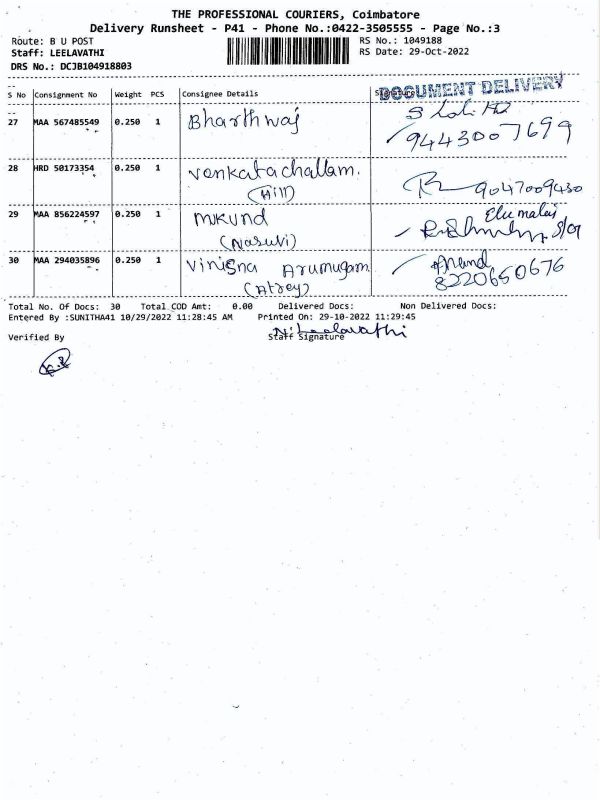 THE PROFESSIONAL COURIERS, Coimbatore
Delivery Runsheet - P41 - Phone No.:0422-3505555 - Page No.:3
Route: B U POST
RS No.: 1049188
Staff: LEELAVATHI
RS Date: 29-Oct-2022
DRS No.: DCJB104918803
DOCUMENT DELIVERY
S No Consignment No Weight PCS Consignee Details Signature
27 MAA 567485549 0.250 1 Bharthwaj
9443007699
28 HRD 50173354 0.250 1 venkatachallam.
(Hill) 9047009430
29 MAA 856224597 0.250 1 mukund Elumalai
(Nasuvi) S/o
30 MAA 294035896 0.250 1 Vinigna Arumugam Anand
(Atrey) 8220650676
Total No. Of Docs: 30 Total COD Amt: 0.00 Delivered Docs: Non Delivered Docs:
Entered By :SUNITHA41 10/29/2022 11:28:45 AM Printed On: 29-10-2022 11:29:45
N. Leelavathi
Verified By Staff Signature